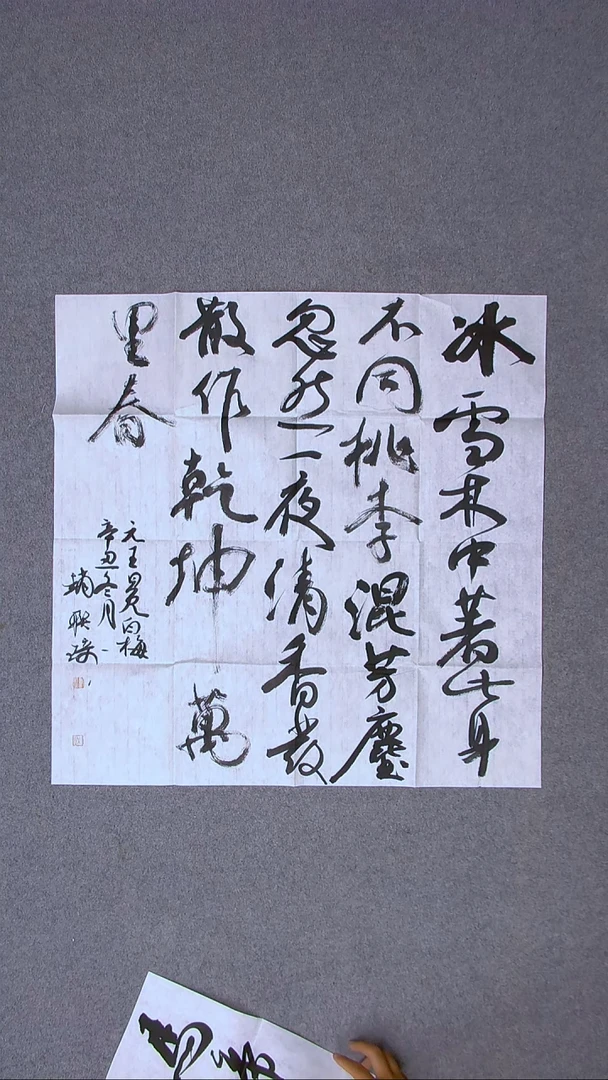 冰雪林中著此身
不同桃李混芳塵
忽然一夜清香發
散作乾坤萬
里春
元王冕白梅
辛丑冬月